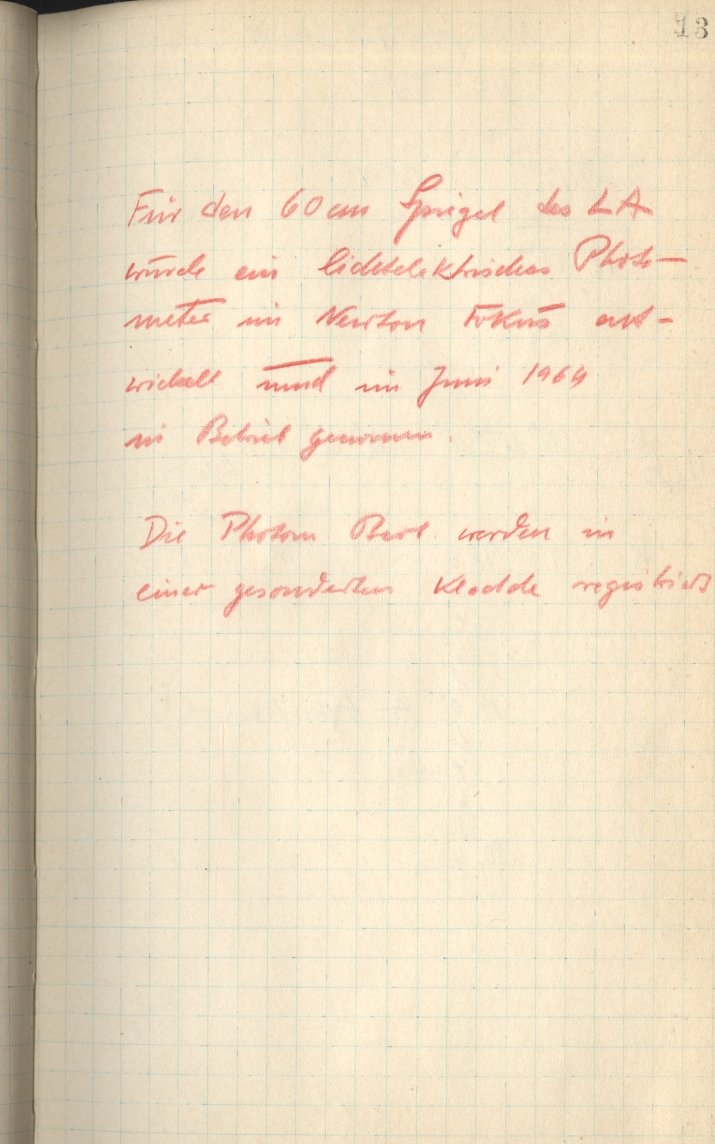 13
Für den 60 cm Spiegel des LA
wurde ein lichtelektrisches Photo-
meter im Newton Fokus ent-
wickelt und im Juni 1964
in Betrieb genommen.
Die Photom Beob. werden in
einer gesonderten Kladde registriert